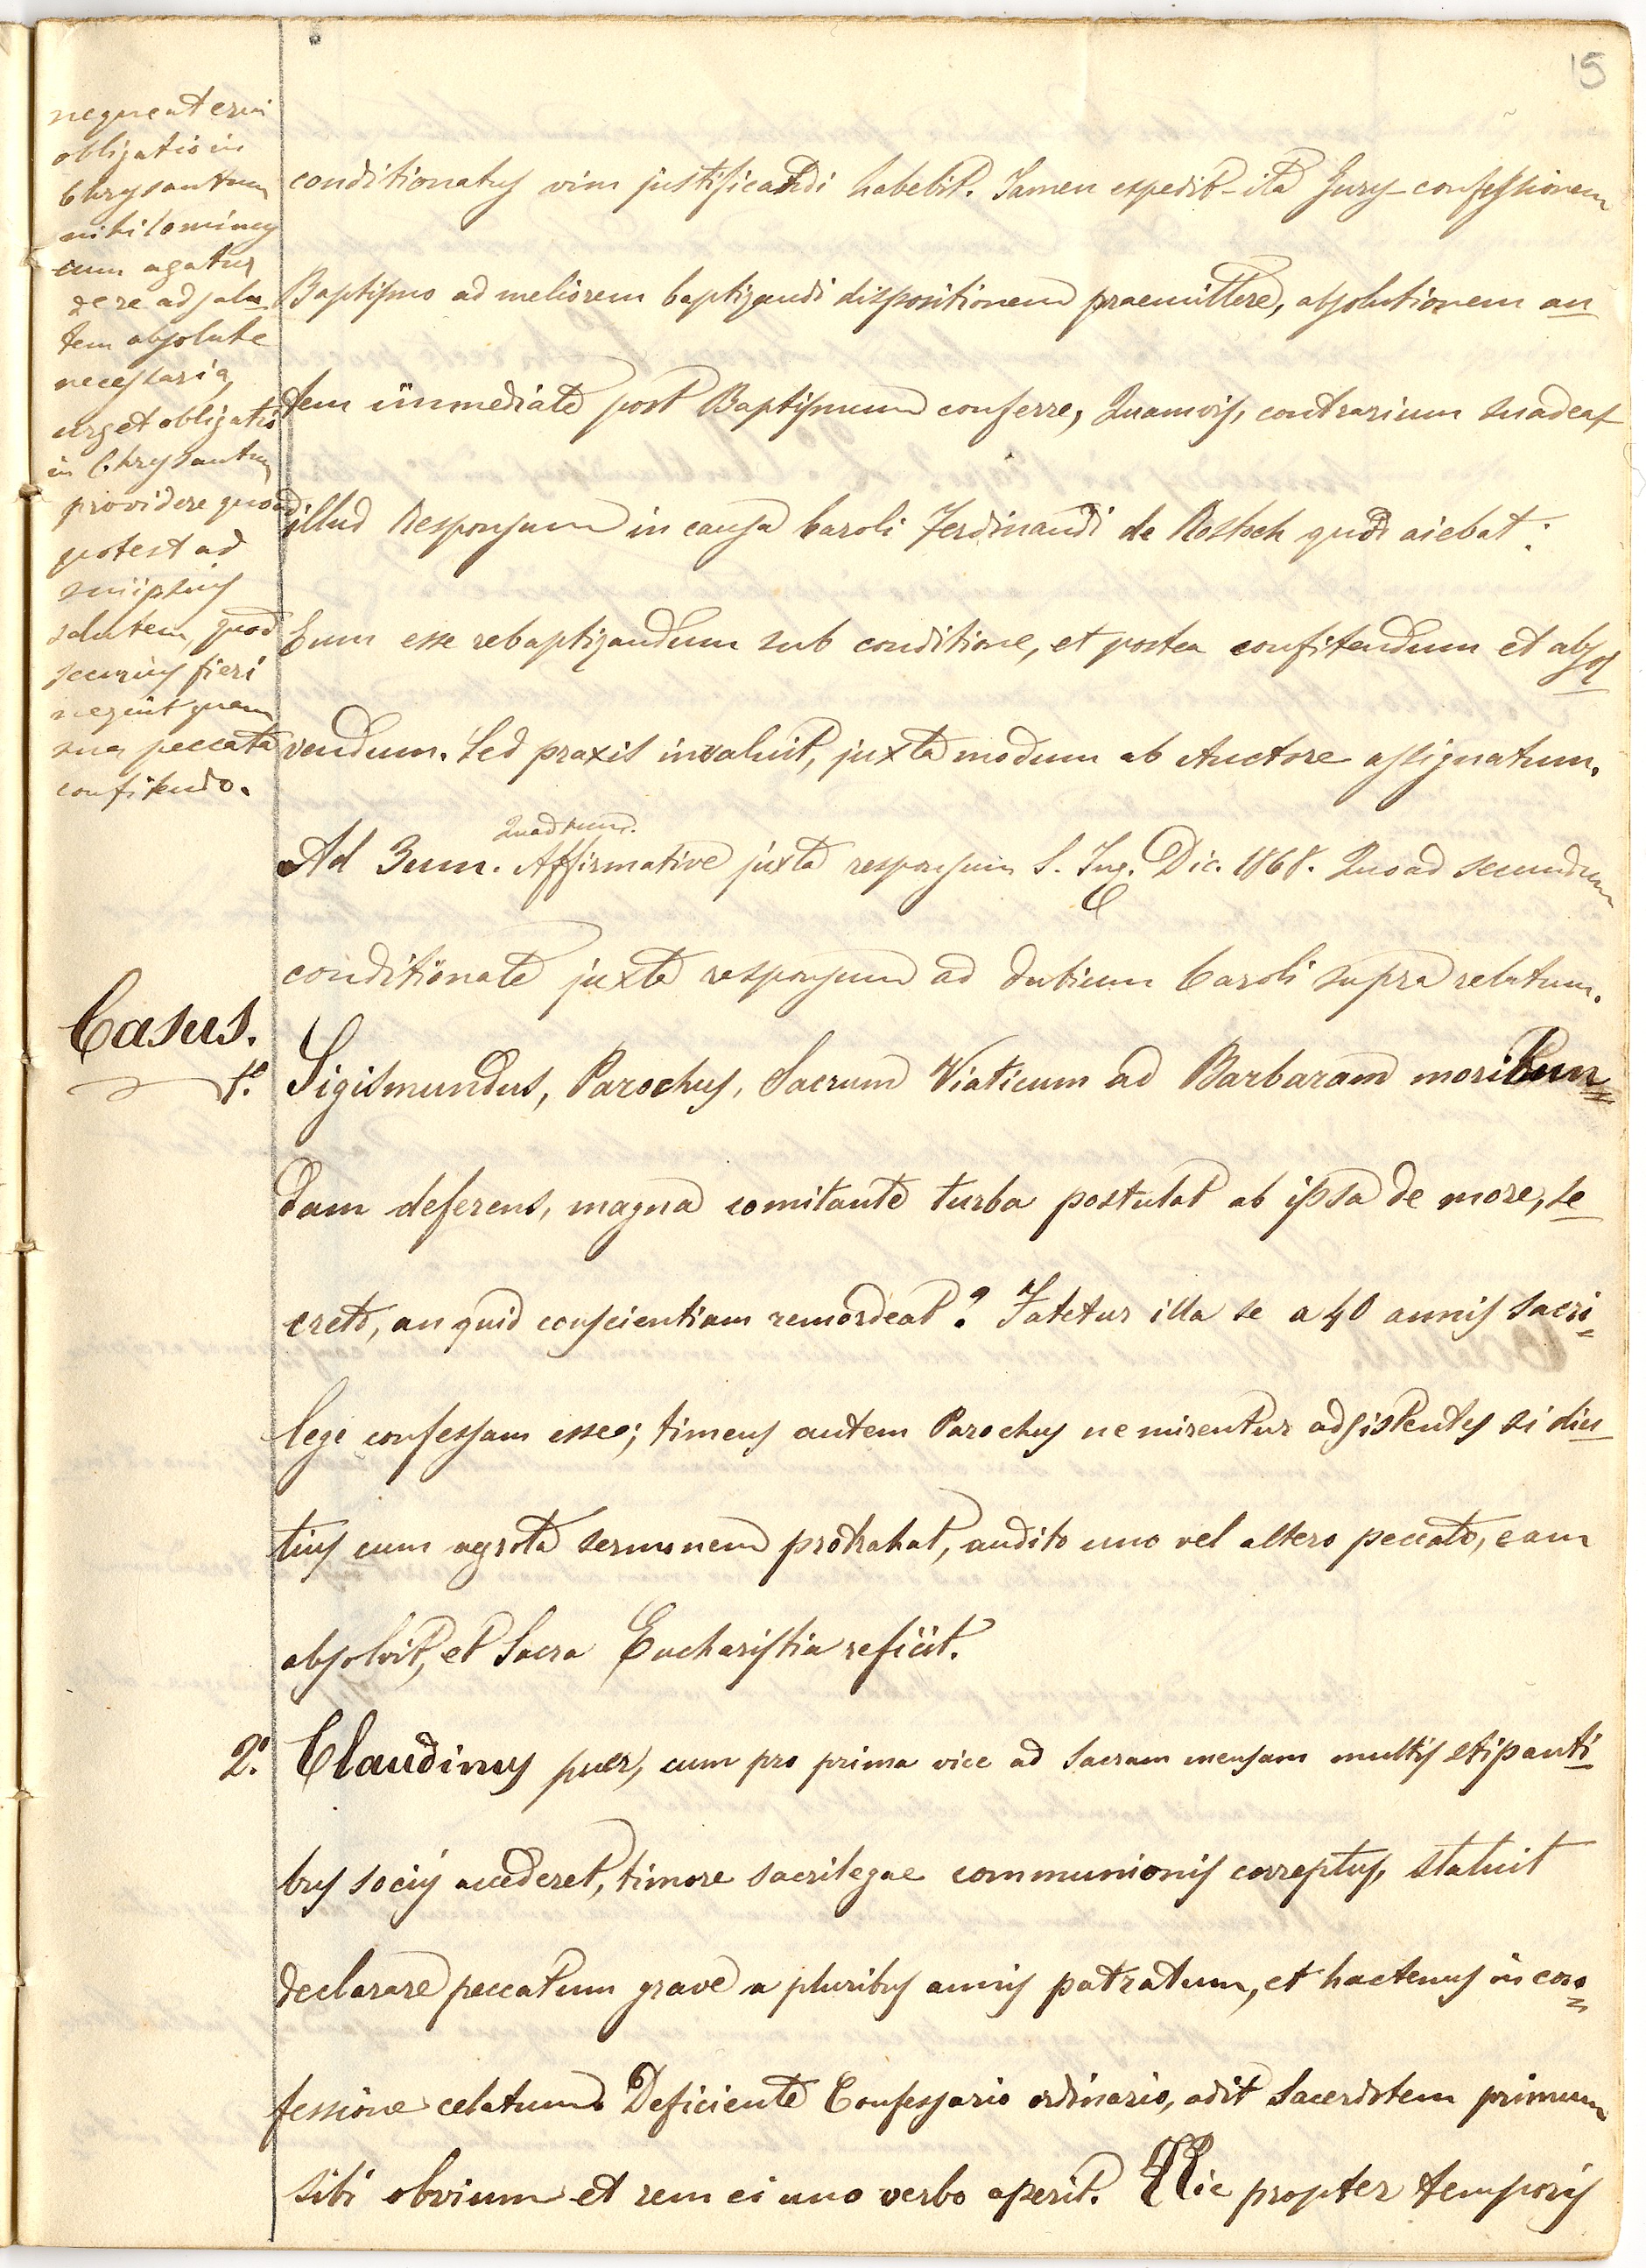 15
nequeat enim
obligatio in
Chrysantum
nihilominus
cum agatur
de re ad salu
tem absolute
necessaria,
urget obligatio
in Chrysantum
providere quoad
potest ad
sui ipsius
salutem, quod
securius fieri
nequit quam
sua peccata
confitendo.
conditionatus vim justificandi habebit. Tamen expedit ita Jurys confessionem
Baptismo ad meliorem baptizandi dispositionem praemittere, absolutionem au
tem immediate post Baptismum conferre, Quamvis, contrarium suadeat
illud Responsum in causa Caroli Ferdinandi de Rostoch quod aiebat:
Eum esse rebaptizandum sub conditione, et postea confitendum et absol
vendum. Sed praxis invaluit, juxta modum ab Auctore assignatum.
Quad pum.
Ad 3um. Affirmative juxta responsum S. Inq. Dic. 1868. Quoad secundum
conditionate juxta responsum ad dubium Caroli supra relatum.
Casus.
1º. Sigismundus, Parochus, Sacrum Viaticum ad Barbaram moribun
dam deferens, magna comitante turba postulat ab ipsa de more, se
creto, an quid conscientiam remordeat? Fatetur illa se a 40 annis sacri
lege confessam esse; timens autem Parochus ne mirentur adsistentes si diu
tius cum agrota sermonem protrahat, audito uno vel altero peccato, eam
absolvit, et Sacra Eucharistia reficit.
2º. Claudinus puer, cum pro prima vice ad sacram mensam multis stipanti
bus sociis accederet, timore sacrilegae communionis correptus, statuit
declarare peccatum grave a pluribus annis patratum, et hactenus in con
fessione celatum. Deficiente Confessario ordinario, adit Sacerdotem primum
sibi obvium et rem ei uno verbo aperit. Hic propter temporis